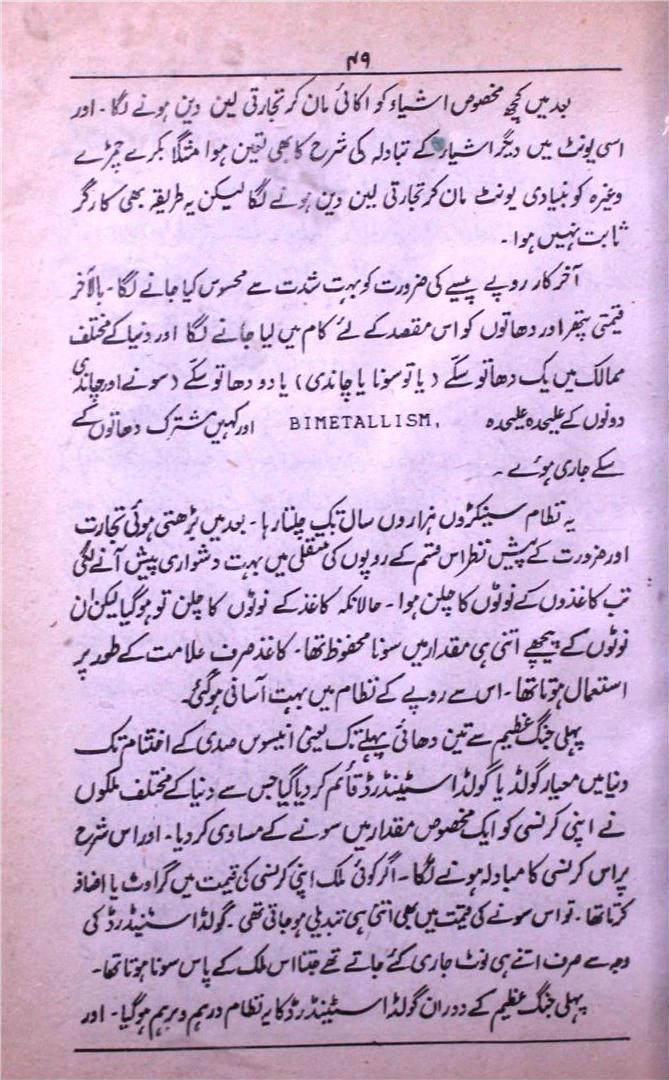 ۴۹
بعد میں کچھ مخصوص اشیاء کو اکائی مان کر تجارتی لین دین ہونے لگا۔ اور
اسی یونٹ میں دیگر اشیاء کے تبادلہ کی شرح کا بھی تعین ہوا مثلاً بکرے چمڑے
وغیرہ کو بنیادی یونٹ مان کر تجارتی لین دین ہونے لگا لیکن یہ طریقہ بھی کارگر
ثابت نہیں ہوا۔
آخر کار روپے پیسے کی ضرورت کو بہت شدت سے محسوس کیا جانے لگا۔ بالآخر
قیمتی پتھر اور دھاتوں کو اس مقصد کے لئے کام میں لیا جانے لگا اور دنیا کے مختلف
ممالک میں یک دھاتو سکّے (یا تو سونا یا چاندی) یا دو دھاتو سکّے (سونے اور چاندی
دونوں کے علیحدہ علیحدہ BIMETALLISM, اور کہیں مشترک دھاتوں کے
سکے جاری ہوئے۔
یہ نظام سینکڑوں ہزاروں سال تک چلتا رہا۔ بعد میں بڑھتی ہوئی تجارت
اور ضرورت کے پیش نظر اس قسم کے روپوں کی منتقلی میں بہت دشواری پیش آنے لگی
تب کاغذوں کے نوٹوں کا چلن ہوا۔ حالانکہ کاغذ کے نوٹوں کا چلن تو ہو گیا لیکن ان
نوٹوں کے پیچھے اتنی ہی مقدار میں سونا محفوظ تھا۔ کاغذ صرف علامت کے طور پر
استعمال ہوتا تھا۔ اس سے روپے کے نظام میں بہت آسانی ہو گئی۔
پہلی جنگ عظیم سے تین دھائی پہلے تک یعنی انیسوں صدی کے اختتام تک
دنیا میں معیار گولڈ یا گولڈ اسٹینڈرڈ قائم کر دیا گیا جس سے دنیا کے مختلف ملکوں
نے اپنی کرنسی کو ایک مخصوص مقدار میں سونے کے مساوی کر دیا۔ اور اس شرح
پر اس کرنسی کا مبادلہ ہونے لگا۔ اگر کوئی ملک اپنی کرنسی کی قیمت میں گراوٹ یا اضافہ
کرتا تھا۔ تو اس سونے کی قیمت میں بھی اتنی ہی تبدیلی ہو جاتی تھی۔ گولڈ اسٹینڈرڈ کی
وجہ سے صرف اتنے ہی نوٹ جاری کئے جاتے تھے جتنا اس ملک کے پاس سونا ہوتا تھا۔
پہلی جنگ عظیم کے دوران گولڈ اسٹینڈرڈ کا یہ نظام درہم و برہم ہو گیا۔ اور